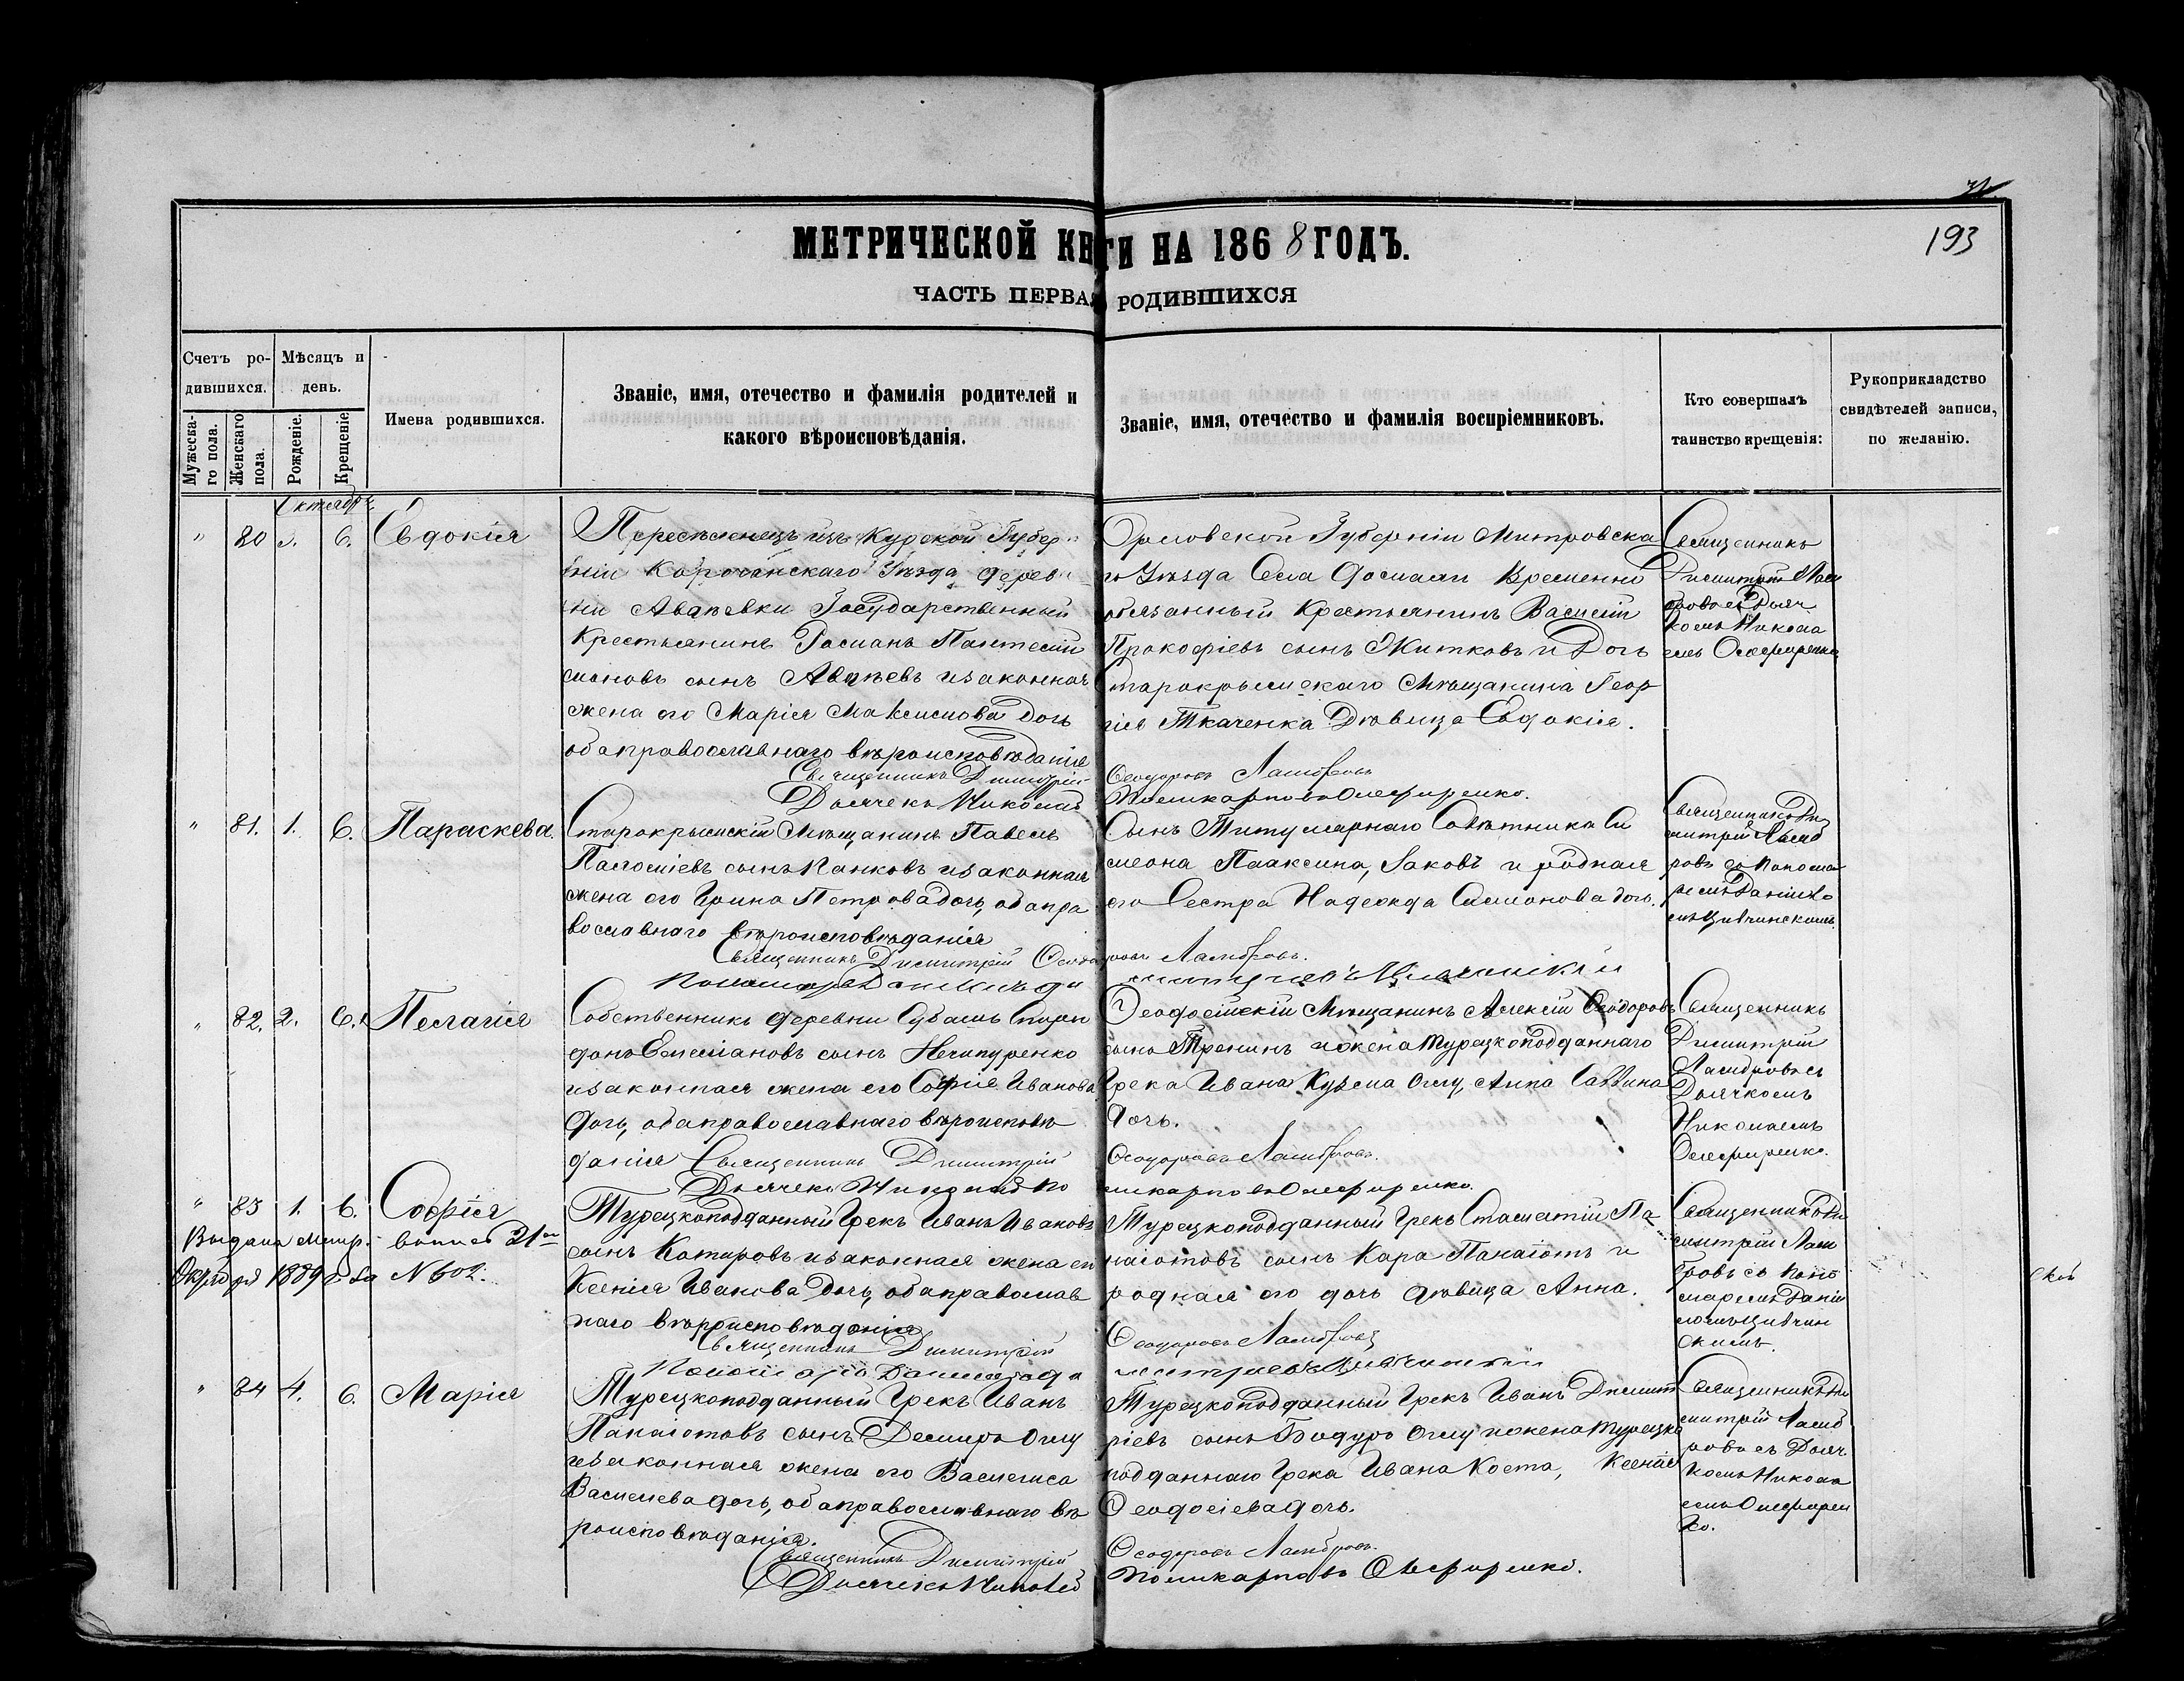 193
МЕТРИЧЕСКОЙ КНИГИ НА 1868 ГОДЪ.
ЧАСТЬ ПЕРВАЯ РОДИВШИХСЯ
Счетъ ро-
дившихся.
Мужеска-
го пола.
Женскаго
пола.
Мѣсяцъ и
день.
Рожденіе.
Крещеніе.
Имена родившихся.
Званіе, имя, отечество и фамилія родителей и
какого вѣроисповѣданія.
Званіе, имя, отечество и фамилія воспріемниковъ.
Кто совершалъ
таинство крещенія:
Рукоприкладство
свидѣтелей записи,
по желанію.
Октябрь
" 80 6. Евдокія
Переселенецъ изъ Курской Губер
ніи Корочанскаго Уѣзда дерев
ни Авдѣевки Государственный
Крестьянинъ
сынъ Авдѣевъ и законная
жена его Марія Максимова дочь
оба православнаго вѣроисповѣданія
Священникъ Димитрій
Дьячекъ Николай
Орловской Губерніи Митровска
го Уѣзда Села Временно
обязанный Крестьянинъ Василій
Прокофіевъ сынъ Житковъ и Дочь
Старокрымскаго Мѣщанина Геор
гія Ткаченка Дѣвица Евдокія.
Ѳеодоровъ Ламбровъ
Поликарповъ Олефиренко.
Священникъ
Димитрій Лам
бровъ съ Дьяч
комъ Никола
емъ Олефиренко
" 81. 1. 6. Параскева.
Старокрымскій Мѣщанинъ Павелъ
сынъ Панковъ и законная
жена его Ирина Петрова дочь, оба пра
вославнаго вѣроисповѣданія
Священникъ Димитрій Ѳеодоровъ Ламбровъ.
Сынъ Титулярнаго Совѣтника Си
меона Пааксина, Іаковъ и родная
его Сестра Надежда Симеонова дочь.
Священникъ Ди
митрій Ламб
ровъ съ Понома
ремъ Даніило
мъ Цивчинскимъ.
" 82. 2. 6. Пелагія
Собственникъ деревни Субашъ Спири
донъ Емеліановъ сынъ Нечипуренко
и законная жена его Софія Иванова
дочь, оба православнаго вѣроисповѣ
данія Священникъ Димитрій
Дьячекъ Николай По
Ѳеодосійскій Мѣщанинъ Алексій Ѳеодоровъ
сынъ Тренинъ и жена Турецкоподданнаго
Грека Ивана Кузьма Оглу, Анна Саввина
дочь.
Ѳеодоровъ Ламбровъ.
ликарповъ Олефиренко.
Священникъ
Димитрій
Ламбровъ съ
Дьячкомъ
Николаемъ
Олефиренко.
" 83 1. 6. Софія
Выдана метр. выпись 21го
Октября 1889 г. за № 602.
Турецкоподданный Грекъ Иванъ Ивановъ
сынъ Котировъ и законная жена его
Ксенія Иванова дочь, оба православ
наго вѣроисповѣданія
Священникъ Димитрій
Турецкоподданный Грекъ Стаматій Па
наіотовъ сынъ Кара Панаіотъ и
родная его дочь дѣвица Анна.
Ѳеодоровъ Ламбровъ
Священникъ Ди
митрій Лам
бровъ съ Поно
маремъ Даніи
ломъ Цивчин
скимъ.
" 84 4. 6. Марія
Турецкоподданный Грекъ Иванъ
Панаіотовъ сынъ Демиръ Оглу
и законная жена его Василиса
Васильева дочь, оба православнаго вѣ
роисповѣданія.
Священникъ Димитрій
Дьячекъ Николай
Турецкоподданный Грекъ Иванъ Димит
ріевъ сынъ Бодуръ Оглу и жена Турецко
подданнаго Грека Ивана Коста, Ксенія
Ѳеодосіева дочь.
Ѳеодоровъ Ламбровъ.
Поликарповъ Олефиренко.
Священникъ Ди
митрій Ламб
ровъ съ Дьяч
комъ Никола
емъ Олефирен
ко.